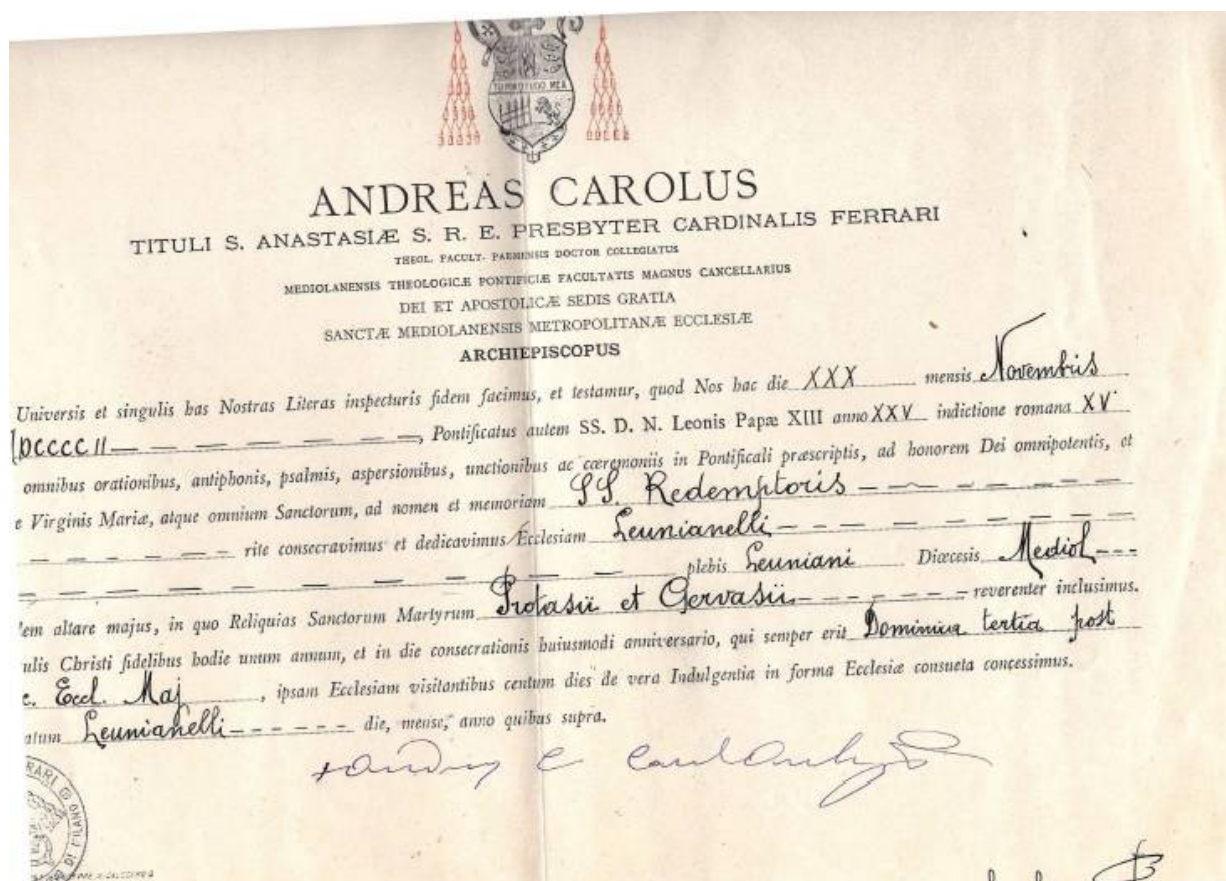 TU FORTITUDO MEA
ANDREAS CAROLUS
TITULI S. ANASTASIÆ S. R. E. PRESBYTER CARDINALIS FERRARI
THEOL. FACULT. PARMENSIS DOCTOR COLLEGIATUS
MEDIOLANENSIS THEOLOGICÆ PONTIFICIÆ FACULTATIS MAGNUS CANCELLARIUS
DEI ET APOSTOLICÆ SEDIS GRATIA
SANCTÆ MEDIOLANENSIS METROPOLITANÆ ECCLESIÆ
ARCHIEPISCOPUS
Universis et singulis has Nostras Literas inspecturis fidem facimus, et testamur, quod Nos hac die XXX mensis Novembris
DCCCCII, Pontificatus autem SS. D. N. Leonis Papæ XIII anno XXV indictione romana XV
omnibus orationibus, antiphonis, psalmis, aspersionibus, unctionibus ac cæremoniis in Pontificali præscriptis, ad honorem Dei omnipotentis, et
e Virginis Mariæ, atque omnium Sanctorum, ad nomen et memoriam SS. Redemptoris
rite consecravimus et dedicavimus Ecclesiam Leunianelli
plebis Leuniani Diœcesis Mediol
em altare majus, in quo Reliquias Sanctorum Martyrum Protasii et Gervasii reverenter inclusimus.
ulis Christi fidelibus hodie unum annum, et in die consecrationis huiusmodi anniversario, qui semper erit Dominica tertia post
c. Eccl. Maj, ipsam Ecclesiam visitantibus centum dies de vera Indulgentia in forma Ecclesiæ consueta concessimus.
atum Leunianelli die, mense, anno quibus supra.
RARI
DI MILANO